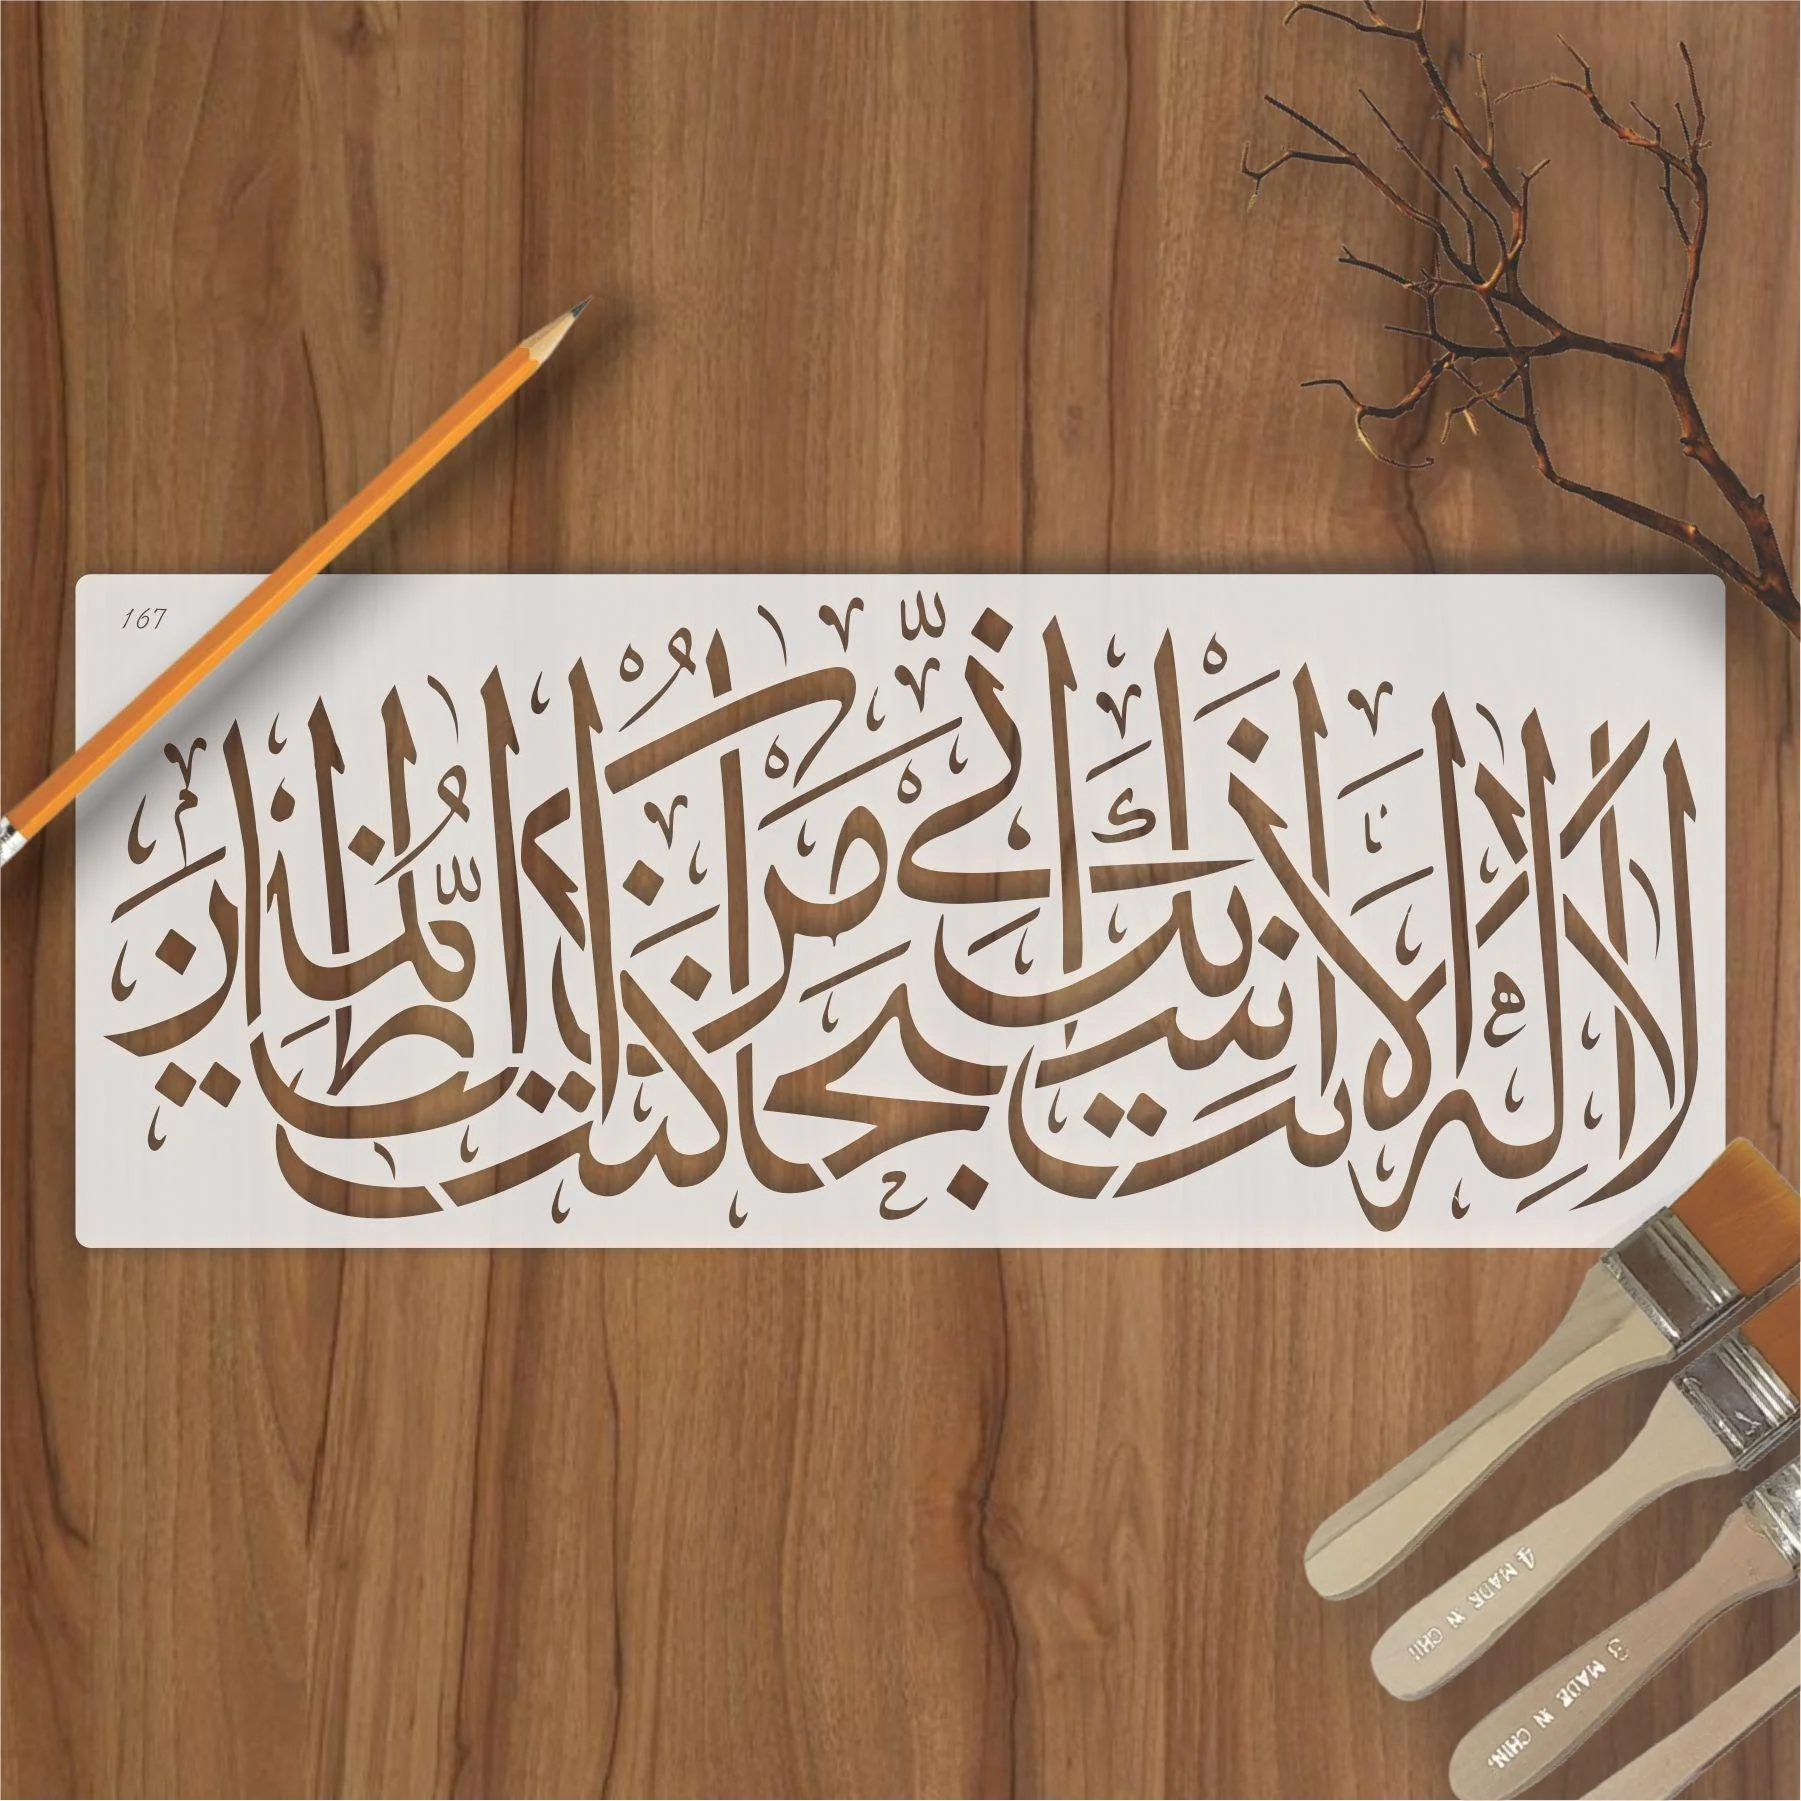 167
لَا إِلَٰهَ إِلَّا أَنْتَ سُبْحَانَكَ إِنِّي كُنْتُ مِنَ الظَّالِمِينَ
4 MADE IN CHI
3 MADE IN CHIN